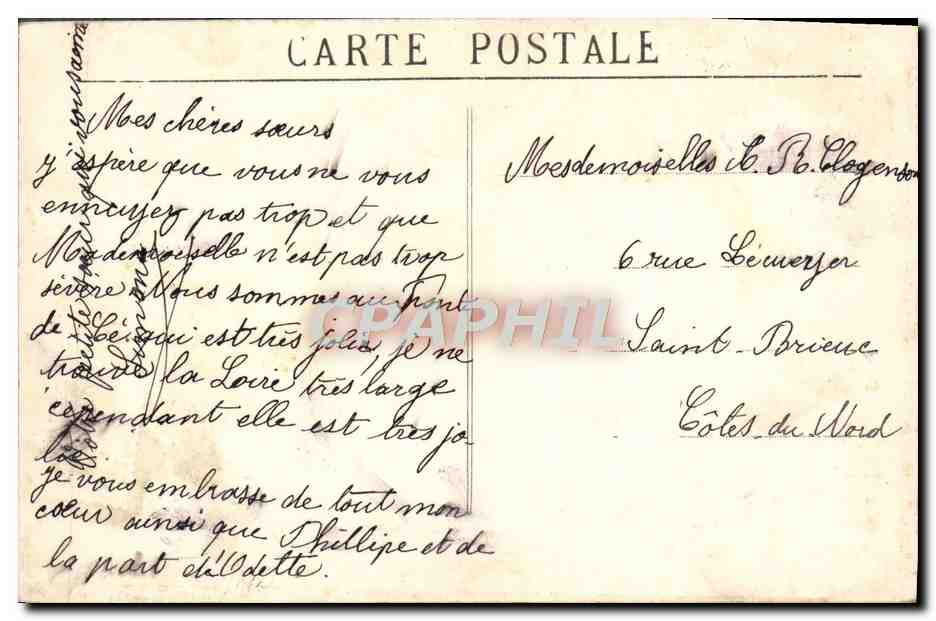 CARTE POSTALE
Mes chères sœurs
j'espère que vous ne vous
ennuyez pas trop et que
Mademoiselle n'est pas trop
sévère. Nous sommes au Pont
de Cé qui est très jolie, je ne
trouve la Loire très large
cependant elle est très jo-
lie
je vous embrasse de tout mon
cœur ainsi que Phillipe et de
la part d'Odette.
Votre petite sœur qui vous aime
Simone
Mesdemoiselles R. Clogenson
6 rue Lémeyer
Saint-Brieuc
Côtes-du-Nord
CPAPHIL